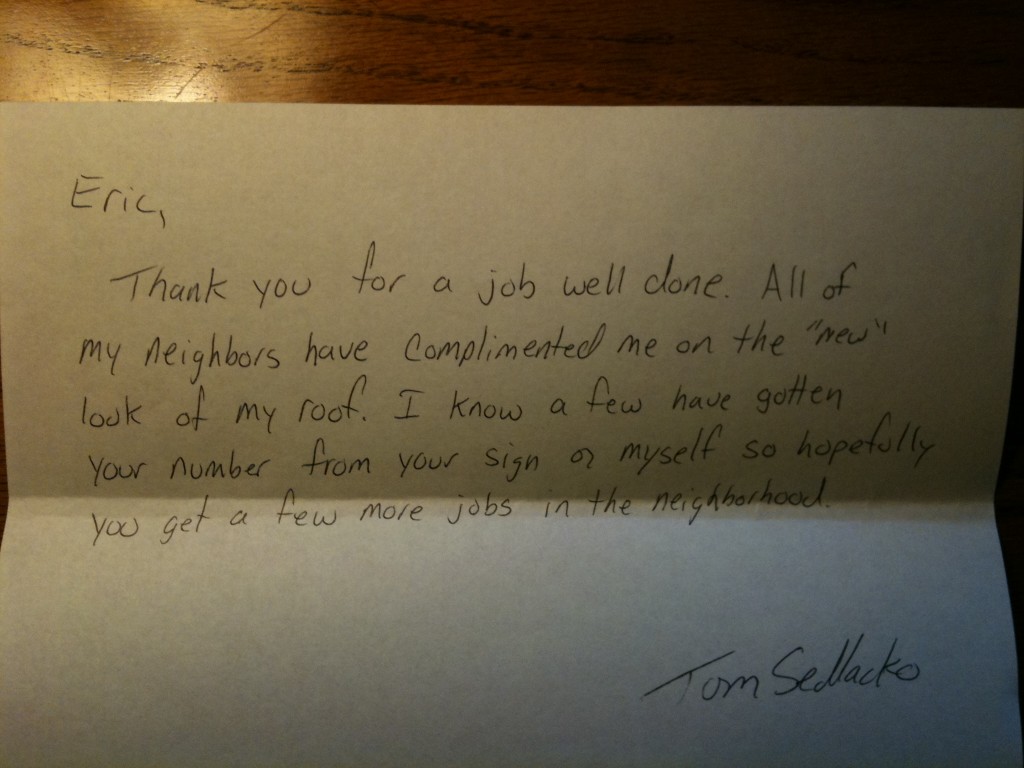 Eric,
Thank you for a job well done. All of
my neighbors have complimented me on the "new"
look of my roof. I know a few have gotten
your number from your sign or myself so hopefully
you get a few more jobs in the neighborhood.
Tom Sedlacko